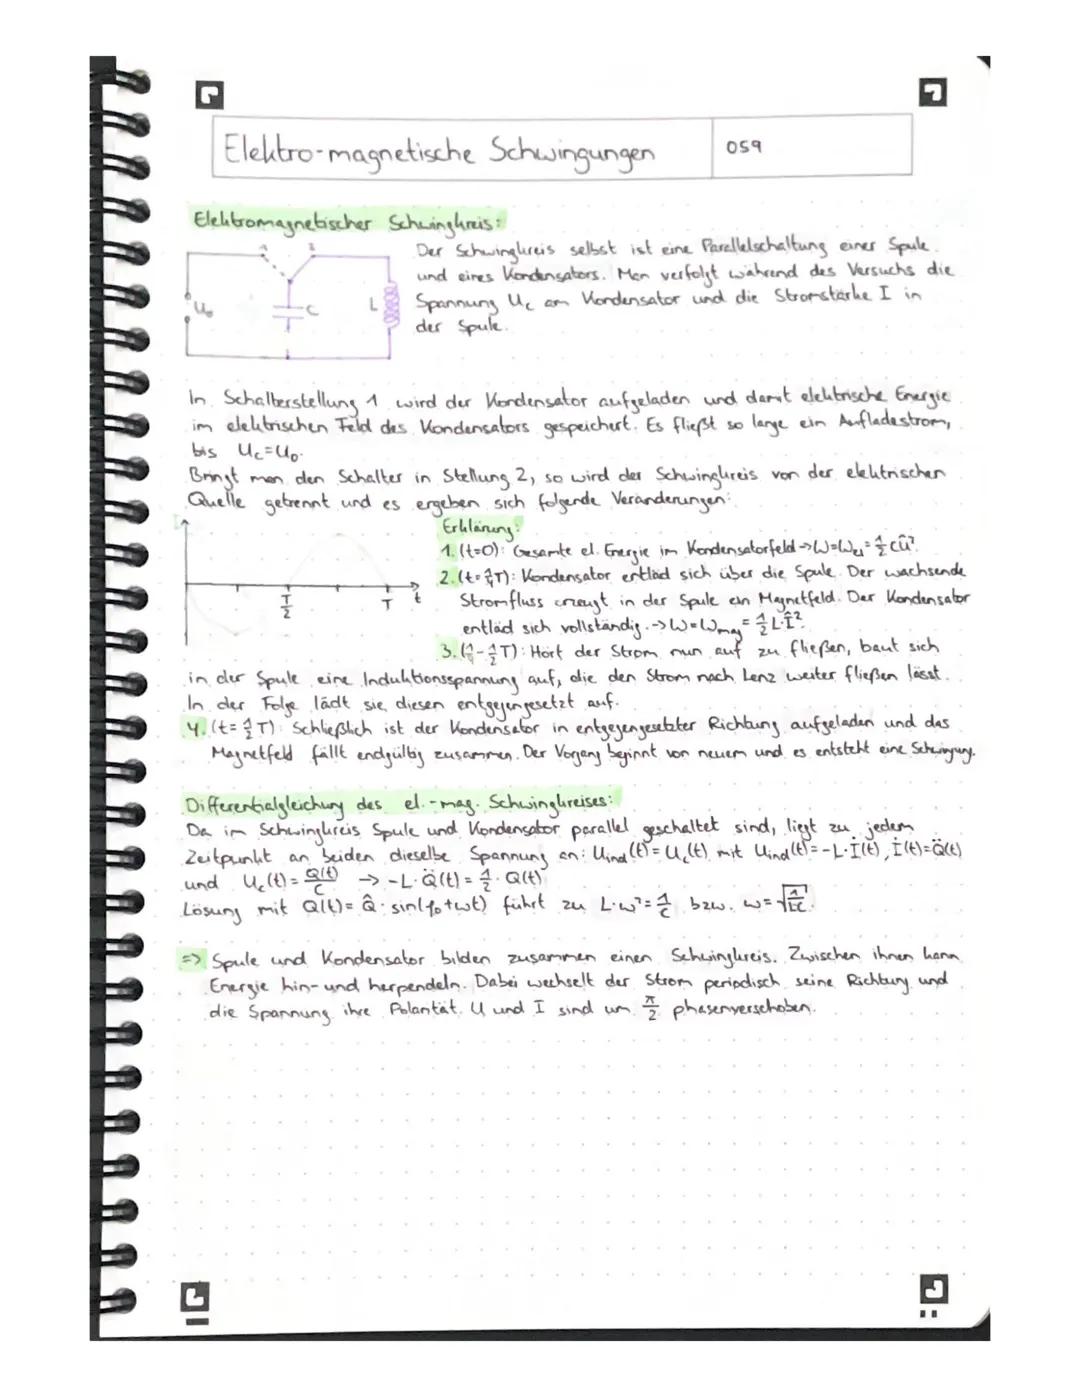 Elektro-magnetische Schwingungen
059
Elektromagnetischer Schwingkreis:
1 2
U₀ C L
Der Schwingkreis selbst ist eine Parallelschaltung einer Spule
und eines Kondensators. Man verfolgt während des Versuchs die
Spannung Uc am Kondensator und die Stromstärke I in
der Spule.
In Schalterstellung 1 wird der Kondensator aufgeladen und damit elektrische Energie
im elektrischen Feld des Kondensators gespeichert. Es fließt so lange ein Aufladestrom,
bis Uc=U₀.
Bringt man den Schalter in Stellung 2, so wird der Schwingkreis von der elektrischen
Quelle getrennt und es ergeben sich folgende Veränderungen:
I
T/2 T t
Erklärung:
1. (t=0): Gesamte el. Energie im Kondensatorfeld → W=Wel=½CÛ².
2. (t=¼T): Kondensator entläd sich über die Spule. Der wachsende
Stromfluss erzeugt in der Spule ein Magnetfeld. Der Kondensator
entläd sich vollständig. → W=Wmag=½L·Î².
3. (¼-½T): Hört der Strom nun auf zu fließen, baut sich
in der Spule eine Induktionsspannung auf, die den Strom nach Lenz weiter fließen lässt.
In der Folge lädt sie diesen entgegengesetzt auf.
4. (t=½T): Schließlich ist der Kondensator in entgegengesetzter Richtung aufgeladen und das
Magnetfeld fällt endgültig zusammen. Der Vorgang beginnt von neuem und es entsteht eine Schwingung.
Differentialgleichung des el.-mag. Schwingkreises:
Da im Schwingkreis Spule und Kondensator parallel geschaltet sind, liegt zu jedem
Zeitpunkt an beiden dieselbe Spannung an: Uind(t)=Uc(t) mit Uind(t)=-L·İ(t), İ(t)=Q̈(t)
und Uc(t)=Q(t)/C → -L·Q̈(t)=½·Q(t)
Lösung mit Q(t)=Q̂·sin(φ₀+ωt) führt zu L·ω²=1/C bzw. ω=√(1/LC).
=> Spule und Kondensator bilden zusammen einen Schwingkreis. Zwischen ihnen kann
Energie hin- und herpendeln. Dabei wechselt der Strom periodisch seine Richtung und
die Spannung ihre Polarität. U und I sind um π/2 phasenverschoben.